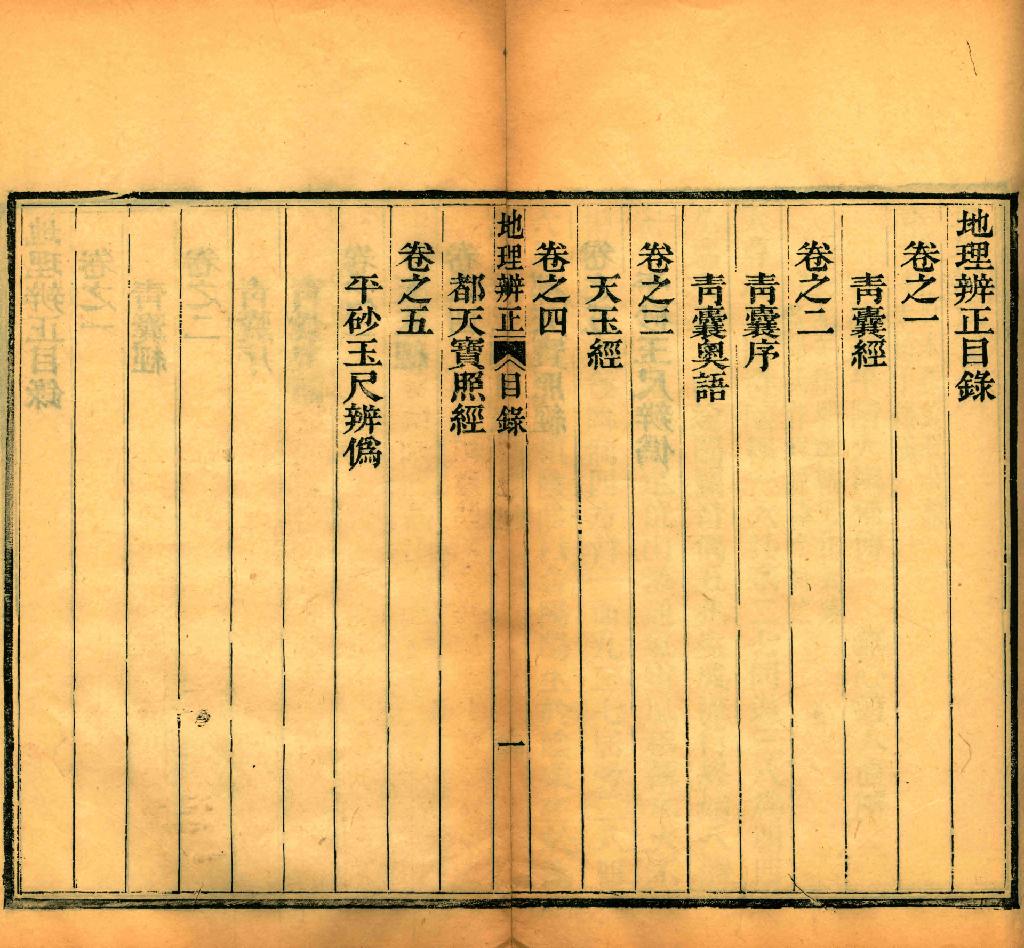 地理辨正目錄
卷之一
靑囊經
卷之二
靑囊序
靑囊奥語
卷之三
天玉經
卷之四
地理辨正 目錄 一
都天寶照經
卷之五
平砂玉尺辨僞